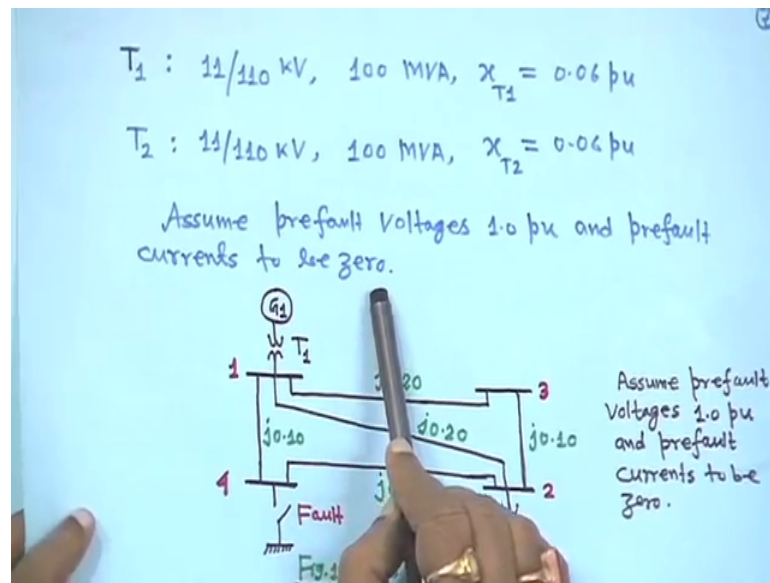 T1 : 11/110 kV, 100 MVA, xT1 = 0.06 pu
T2 : 11/110 KV, 100 MVA, xT2 = 0.06 pu
Assume prefault voltages 1.0 pu and prefault
currents to be zero.
G1
T1
1
20
3
j0.10
j0.20
j0.10
4
2
Fault
Assume prefault
voltages 1.0 pu
and prefault
currents to be
zero.